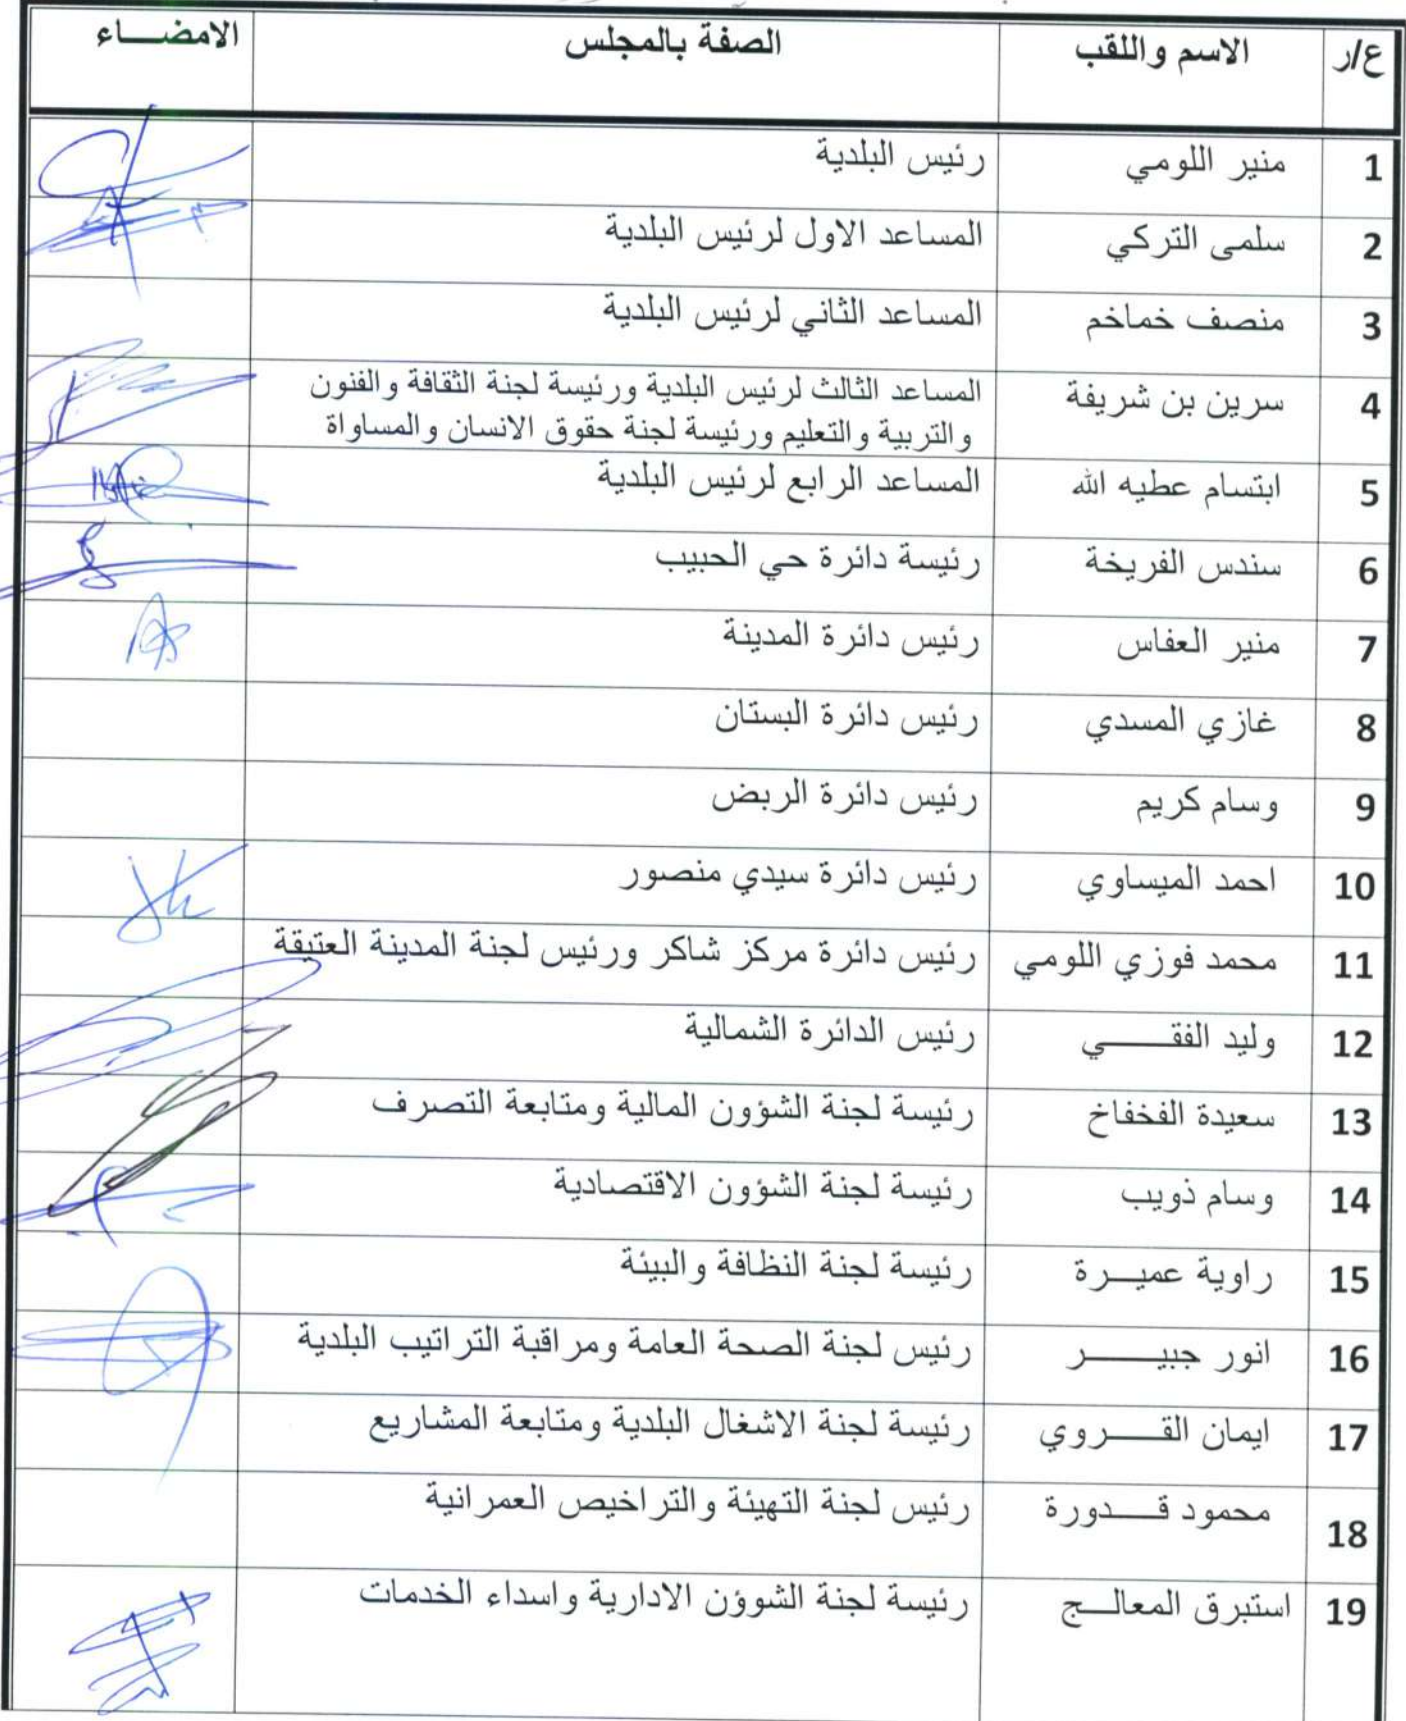 ع/ر الاسم واللقب الصفة بالمجلس الامضــــاء
1 منير اللومي رئيس البلدية
2 سلمى التركي المساعد الاول لرئيس البلدية
3 منصف خماخم المساعد الثاني لرئيس البلدية
4 سرين بن شريفة المساعد الثالث لرئيس البلدية ورئيسة لجنة الثقافة والفنون
والتربية والتعليم ورئيسة لجنة حقوق الانسان والمساواة
5 ابتسام عطيه الله المساعد الرابع لرئيس البلدية
6 سندس الفريخة رئيسة دائرة حي الحبيب
7 منير العفاس رئيس دائرة المدينة
8 غازي المسدي رئيس دائرة البستان
9 وسام كريم رئيس دائرة الربض
10 احمد الميساوي رئيس دائرة سيدي منصور
11 محمد فوزي اللومي رئيس دائرة مركز شاكر ورئيس لجنة المدينة العتيقة
12 وليد الفقـــــــي رئيس الدائرة الشمالية
13 سعيدة الفخفاخ رئيسة لجنة الشؤون المالية ومتابعة التصرف
14 وسام ذويب رئيسة لجنة الشؤون الاقتصادية
15 راوية عميـــرة رئيسة لجنة النظافة والبيئة
16 انور جبيــــــــر رئيس لجنة الصحة العامة ومراقبة التراتيب البلدية
17 ايمان القـــــروي رئيسة لجنة الاشغال البلدية ومتابعة المشاريع
18 محمود قـــــدورة رئيس لجنة التهيئة والتراخيص العمرانية
19 استبرق المعالـــج رئيسة لجنة الشوؤن الادارية واسداء الخدمات